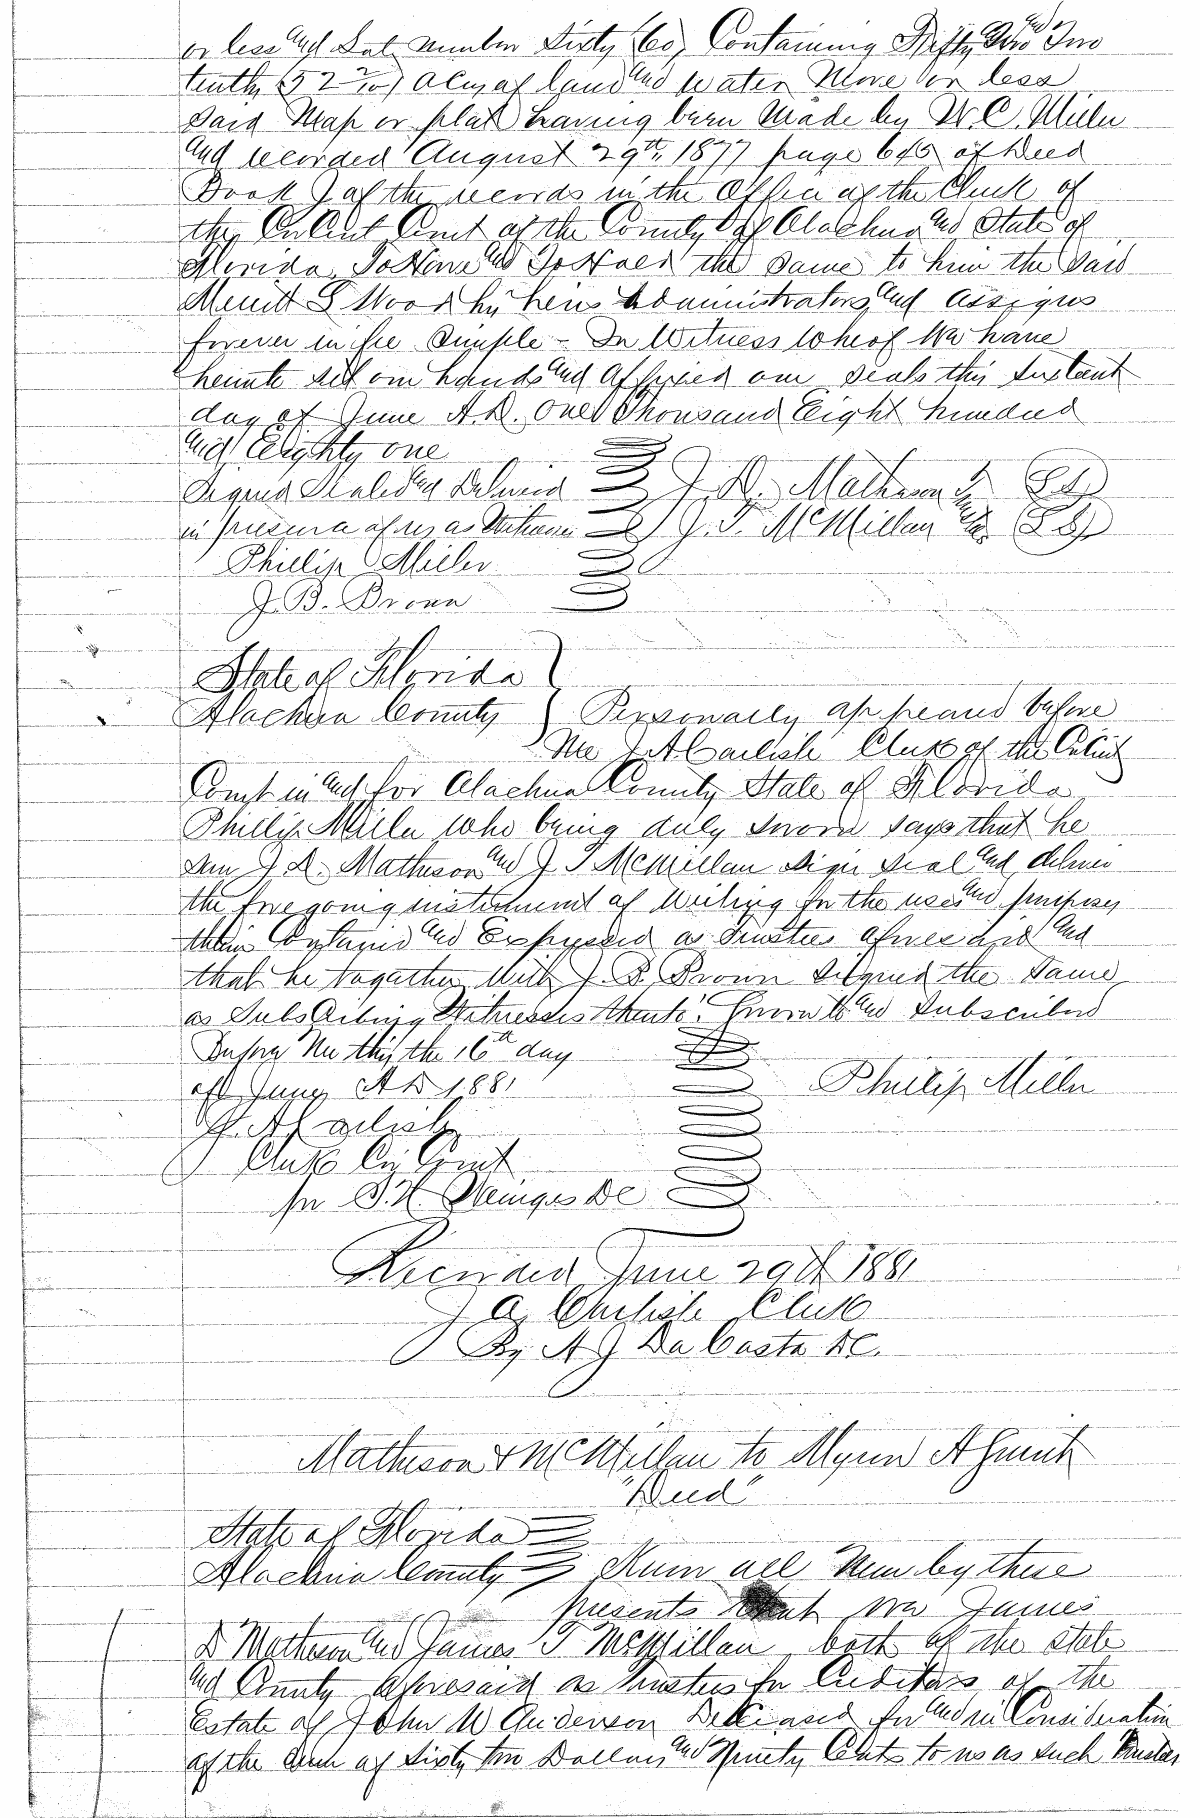 or less and Lot number Sixty (60) Containing Fifty Two and Two
tenths (52 2/10) Acres of land and water More or less
Said Map or plat having been Made by W. C. Miller
and recorded August 29th 1877 page 640 of Deed
Book J of the records in the Office of the Clerk of
the Circuit Court of the County of Alachua and State of
Florida To Have and To Hold the Same to him the Said
Merritt S Wood his heirs Administrators and Assigns
forever in fee Simple - In Witness Whereof We have
hereunto set our hands and Affixed our Seals this
day of June A.D. One Thousand Eight hundred
and Eighty one
Signed Sealed and Delivered J. D. Matheson Tr (LS)
in presence of us as Witnesses J. T. McMillan (LS)
Phillip Miller
J. B. Brown
State of Florida
Alachua County Personally appeared before
Me J A Carlisle Clerk of the Circuit
Court in and for Alachua County State of Florida
Phillip Miller who being duly sworn says that he
saw J. D. Matheson and J T McMillan Sign Seal and deliver
the foregoing instrument of Writing for the uses and purposes
therein Contained and Expressed as Trustees aforesaid and
that he together With J. B. Brown Signed the Same
as Subscribing Witnesses thereto. Sworn to and Subscribed
Before Me this the 16th day
of June A D 1881 Philip Miller
J. A Carlisle
Clerk Cir Court
Per S. H. DC
Recorded June 29th 1881
J A. Carlisle Clerk
By A J Da Costa D.C.
Matheson & McMillan to
"Deed"
State of Florida
Alachua County Know all Men by these
presents that We James
D Matheson and James T McMillan both of the State
and County aforesaid as Trustees for Creditors of the
Estate of John W Anderson Deceased for and in Consideration
of the Sum of Sixty two Dollars and Ninety Cents to us as such Trustees